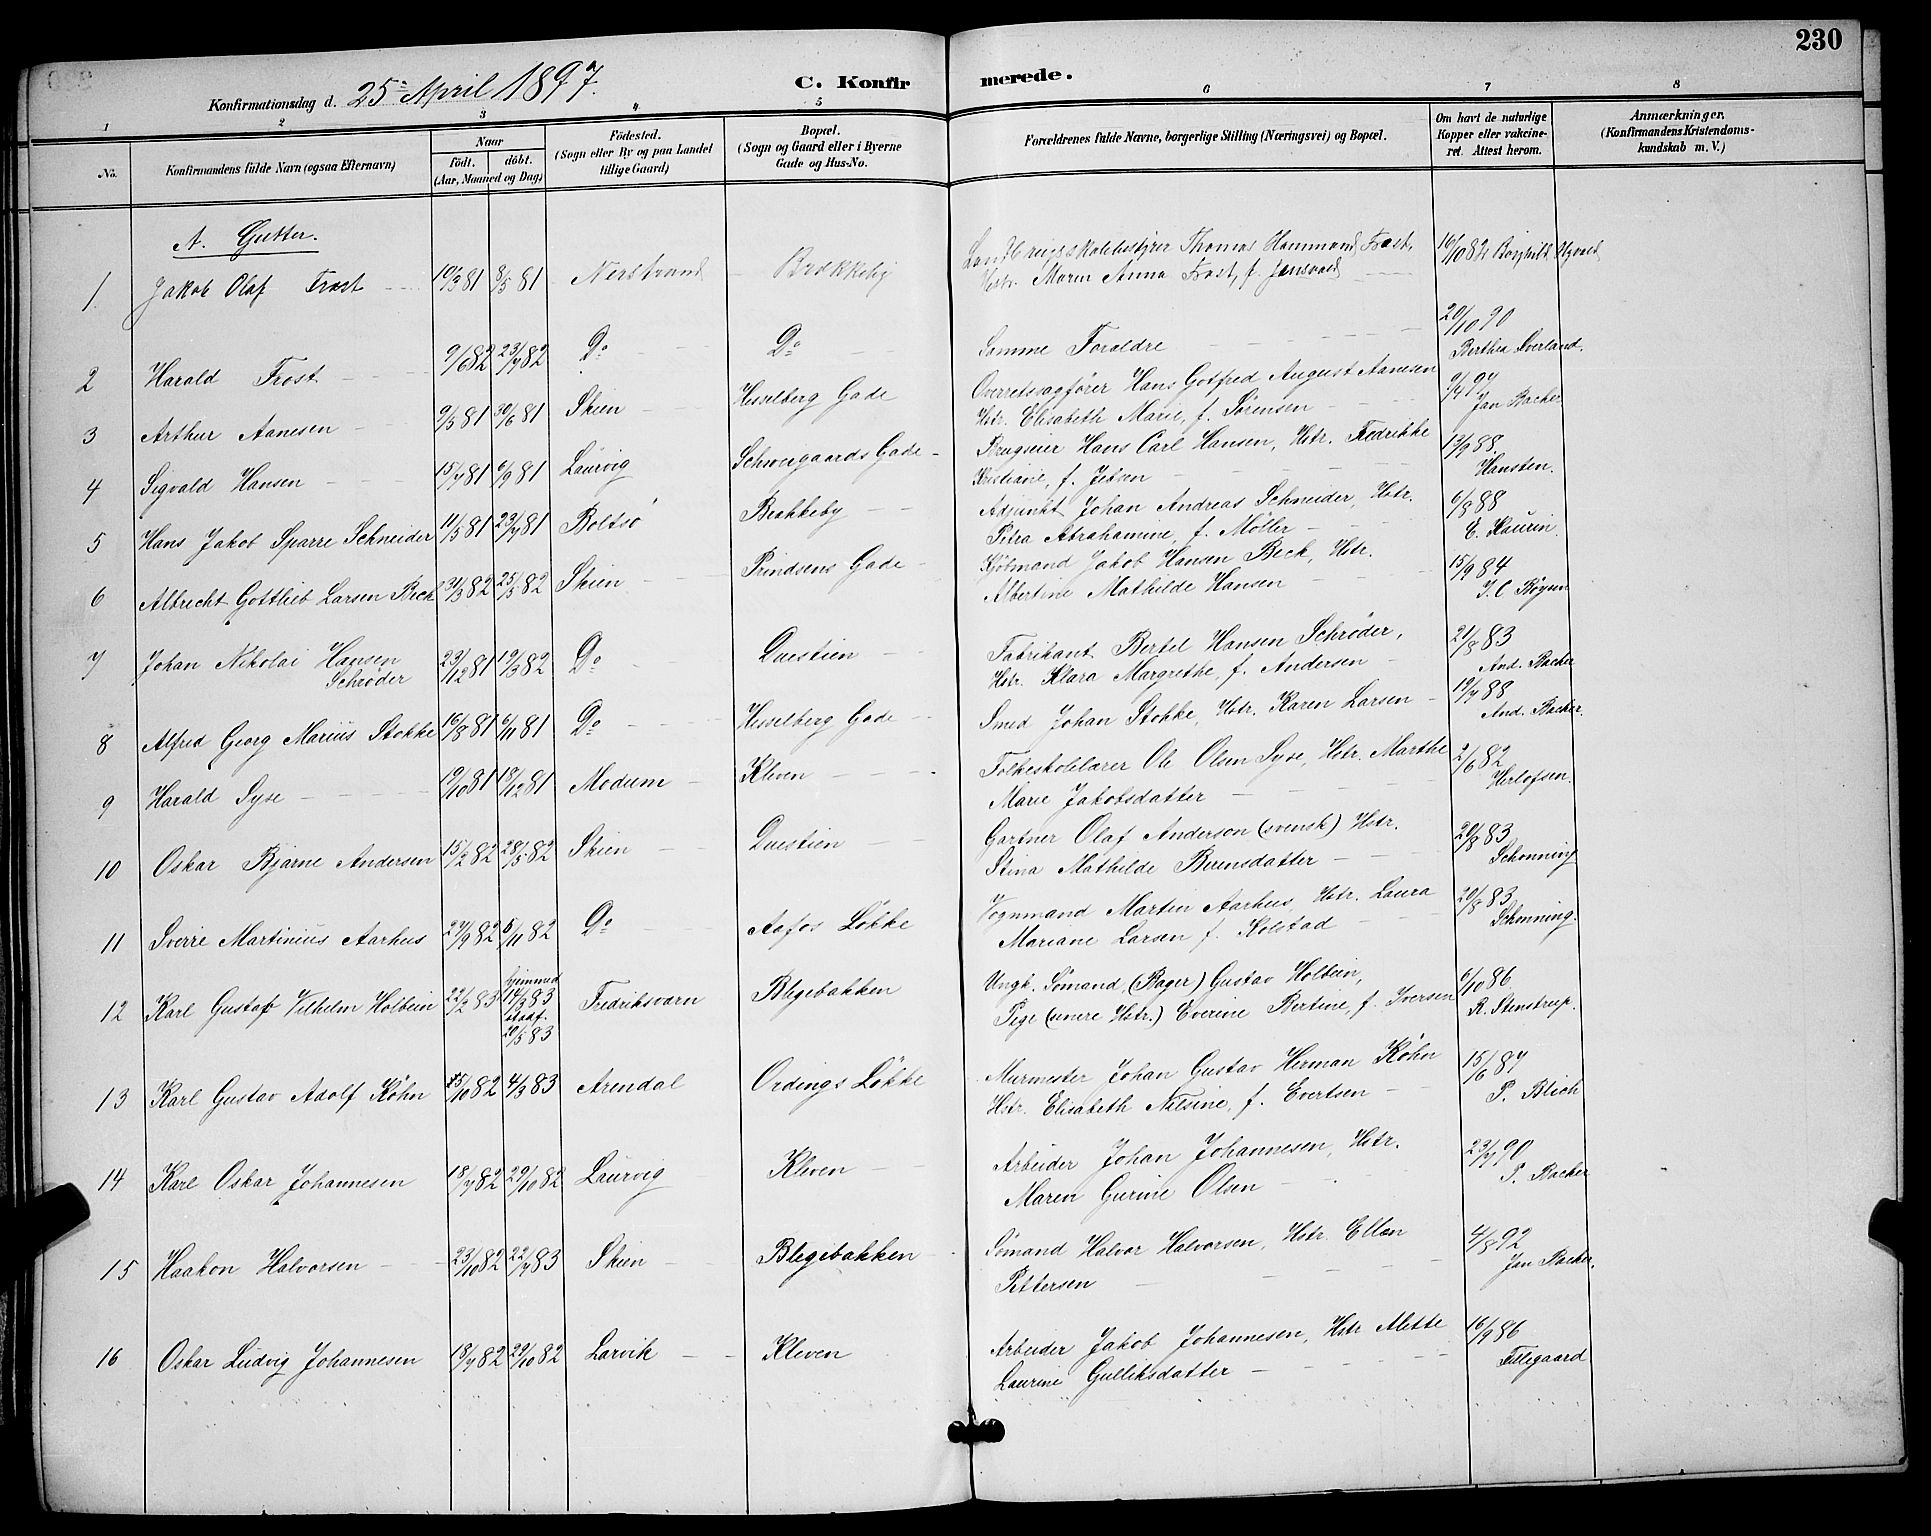 230
Konfirmationsdag d. 25de April 1897.
C. Konfirmerede.
1 2 3 4 5 6 7 8
No.
Konfirmandens fulde Navn (ogsaa Efternavn)
Naar
födt. döbt.
(Aar, Maaned og Dag)
Födested.
(Sogn eller By og paa Landet
tillige Gaard)
Bopæl.
(Sogn og Gaard eller i Byerne
Gade og Hus-No.
Forældrenes fulde Navne, borgerlige Stilling (Næringsvei) og Bopæl.
Om havt de naturlige
Kopper eller vakcine-
ret. Attest herom.
Anmærkninger.
(Konfirmandens Kristendoms-
kundskab m. V.)
A. Gutter.
1 Jakob Olaf Frost 10/3 81 8/5 81 Nerstrand Brekkeby Landbrugsskolebestyrer Thomas Hammond Frost,
Hstr. Maren Anna Frost, f. 16/10 82 Borghild
2 Harald Frost 9/6 82 23/7 82 Do Do Samme Forældre 20/10 90
Berthea Överland.
3 Arthur Aanesen 9/5 81 30/6 81 Skien Hesselberg Gade Overretssagförer Hans Gotfred August Aanesen
Hstr. Elisabeth Marie, f. Sørensen 9/4 97
Jan Backer
4 Sigvald Hansen 15/7 81 6/9 81 Laurvig Schweigaards Gade Brugseier Hans Carl Hansen, Hstr. Fredrikke
Kristiane, f. Jebsen 13/9 88.
Hansten.
5 Hans Jakob Sparre Schneider 11/5 81 23/7 81 Boltsö Brekkeby Adjunkt Johan Andreas Schneider, Hstr.
Petra Abrahamine, f. Möller 6/8 88
E. Kaurin
6 Albrecht Gottlieb Larsen Beck 31/3 82 25/5 82 Skien Prindsens Gade Kjöbmand Jakob Hansen Beck, Hstr.
Albertine Mathilde Hansen 15/9 84
J. C. Bögen
7 Johan Nikolai Hansen
Schrøder 23/12 81 19/3 82 Do Duestien Fabrikant Bertel Hansen Schrøder,
Hstr. Klara Margrethe, f. Andersen 21/8 83
And. Backer
8 Alfred Georg Marius Stokke 16/8 81 6/11 81 Do Hesselberg Gade Smed Johan Stokke, Hstr. Karen Larsen 19/7 88
And. Backer.
9 Harald Syse 19/10 81 18/12 81 Modum Kleven Folkeskolelærer Ole Olsen Syse, Hstr. Marthe
Marie Jakobsdatter 2/6 82
Herlofsen.
10 Oskar Bjarne Andersen 15/2 82 28/5 82 Skien Duestien Gartner Olaf Anderson (svensk) Hstr.
Stina Mathilde Bensdatter 20/8 83
Schønning
11 Sverre Martinius Aarhus 27/9 82 5/11 82 Do Aafos Løkke Vognmand Martin Aarhus, Hstr. Laura
Mariane Larsen f. Kolstad 20/8 83
Schønning.
12 Karl Gustaf Vilhelm Holbein 22/2 83 hjemmed
14/3 83
stadf.
20/5 83 Fredriksværn Blegebakken Ungk. Sömand, (Bager) Gustav Holbein,
Pige (senere Hstr.) Everine Bertine, f. Iversen 6/10 86
R. Stenstrup.
13 Karl Gustav Adolf Köhn 15/10 82 4/3 83 Arendal Ordings Løkke Murmester Johan Gustav Herman Köhn
Hstr. Elisabeth Nilsine, f. Evertsen 15/6 87
P. Blich
14 Karl Oskar Johannesen 18/7 82 29/10 82 Laurvig Kleven Arbeider Johan Johannesen, Hstr.
Maren Gurine Olsen 23/7 90
P. Backer
15 Haakon Halvorsen 23/10 82 22/7 83 Skien Blegebakken Sömand Halvor Halvorsen, Hstr. Ellen
Pettersen 4/8 92
Jan Backer.
16 Oskar Ludvig Johannesen 18/7 82 29/10 82 Larvik Kleven Arbeider Jakob Johannesen, Hstr. Mette
Laurine Gulliksdatter 16/9 86
Fillegaard